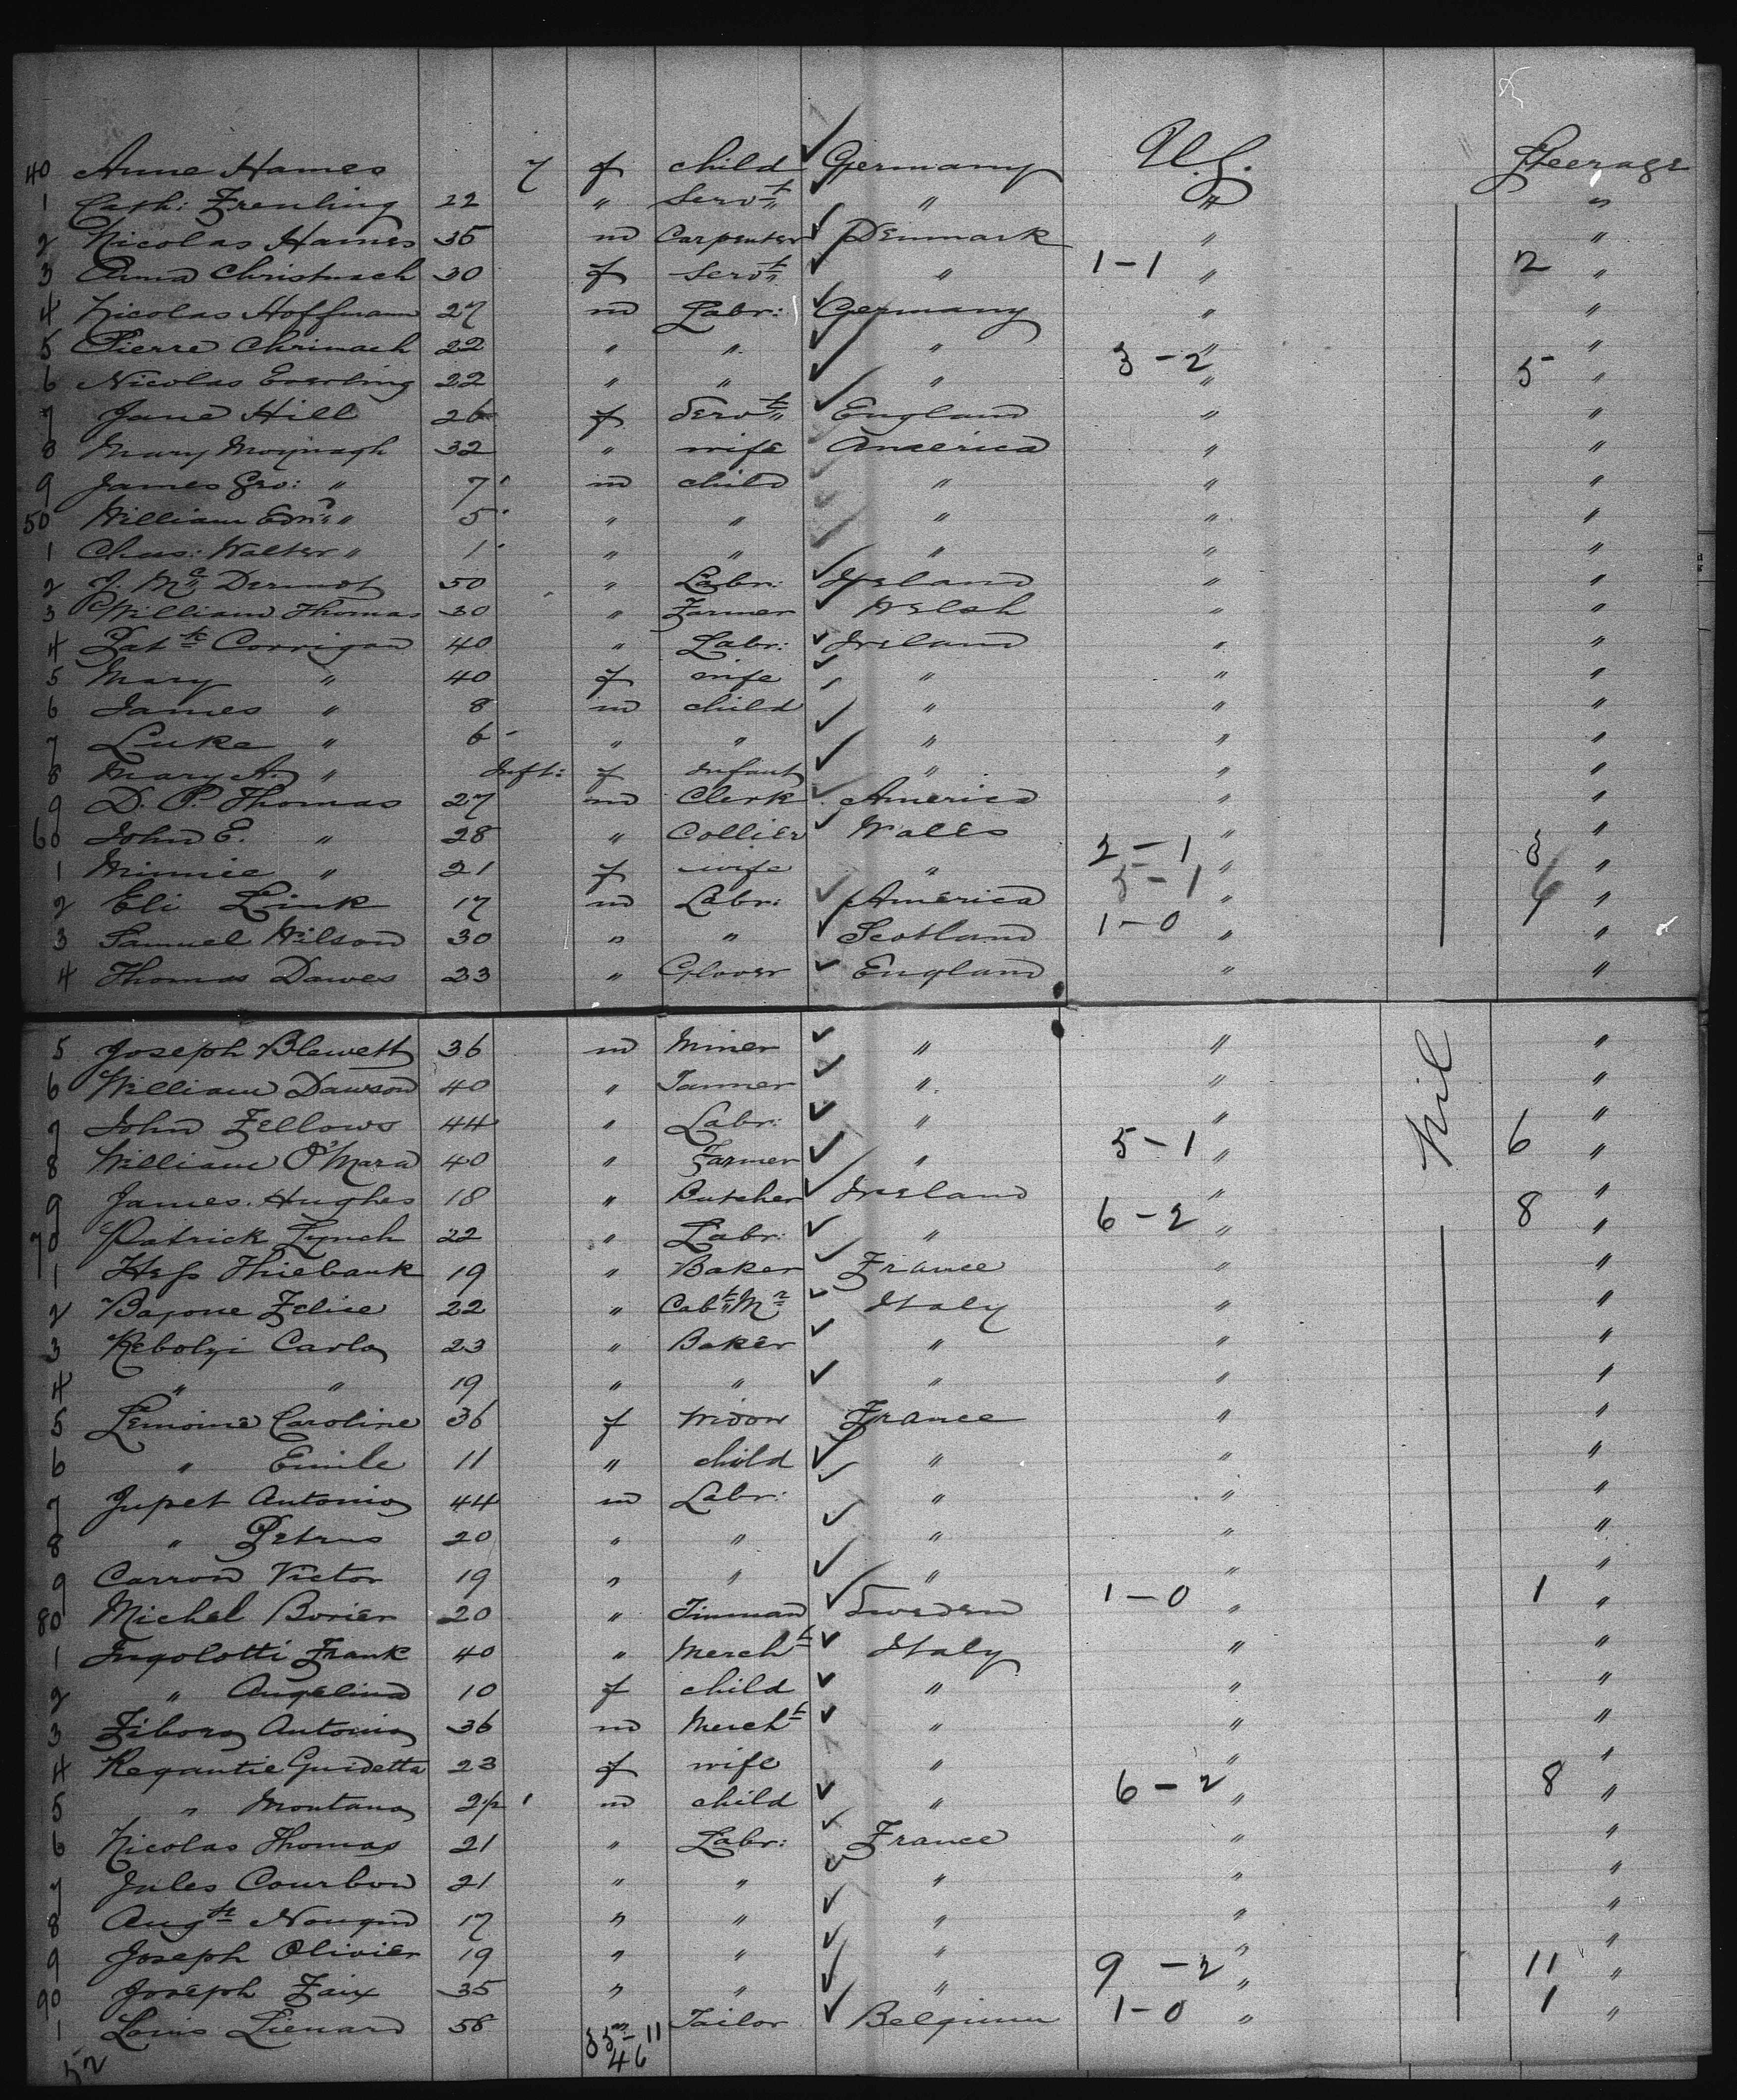 40 Anne Hames 7 f child Germany U.S. Steerage
1 Cath: Frenling 22 " Servt " " "
2 Nicolas Hames 35 m Carpenter Denmark " "
3 Anna Christnach 30 f Servt " 1-1 " 2 "
4 Nicolas Hoffmann 27 m Labr: Germany " "
5 Pierre Chrinach 22 " " " " "
6 Nicolas Everling 22 " " " 3-2 " 5 "
7 Jane Hill 26 f Servt England " "
8 Mary Moynagh 32 " wife America " "
9 James Geo: " 7 m child " " "
50 William Edwd " 5 " " " " "
1 Chas: Walter " 1 " " " " "
2 J. McDermot 50 " Labr: Ireland " "
3 William Thomas 30 " Farmer Welsh " "
4 Patk Corrigan 40 " Labr: Ireland " "
5 Mary " 40 f wife " " "
6 James " 8 m child " " "
7 Luke " 6 " " " " "
8 Mary A. " Inft: f Infant " " "
9 D. P. Thomas 27 m Clerk America " "
60 John E. " 28 " Collier Wales " "
1 Minnie " 21 f wife " 2-1 " 3 "
2 Eli Link 17 m Labr: America 5-1 " 6 "
3 Samuel Wilson 30 " " Scotland 1-0 " 1 "
4 Thomas Dawes 23 " Glover England " "
5 Joseph Blewett 36 m Miner " " Nil "
6 William Dawson 40 " Tanner " " "
7 John Fellows 44 " Labr: " " "
8 William O'Mara 40 " Farmer " 5-1 " 6 "
9 James Hughes 18 " Butcher Ireland " "
70 Patrick Lynch 22 " Labr: " 6-2 " 8 "
1 Hess Thiebauk 19 " Baker France " "
2 Bajone Felice 22 " Cabt Mr Italy " "
3 Rebolgi Carlo 23 " Baker " " "
4 " " 19 " " " " "
5 Lemoine Caroline 36 f widow France " "
6 " Emile 11 " child " " "
7 Jupet Antonio 44 m Labr: " " "
8 " Petrus 20 " " " " "
9 Carron Victor 19 " " " " "
80 Michel Borier 20 " Tinman Sweden 1-0 " 1 "
1 Ingolotti Frank 40 " Mercht Italy " "
2 " Angelina 10 f child " " "
3 Fibora Antonio 36 m Mercht " " "
4 Regantie Guidetta 23 f wife " " "
5 " Montana 2 m child " 6-2 " 8 "
6 Nicolas Thomas 21 " Labr: France " "
7 Jules Courbon 21 " " " " "
8 Augte Nouqin 17 " " " " "
9 Joseph Olivier 19 " " " " "
90 Joseph Faix 35 " " " 9-2 " 11 "
1 Louis Lienard 58 Tailor Belgium 1-0 " 1 "
52 35m-11
46